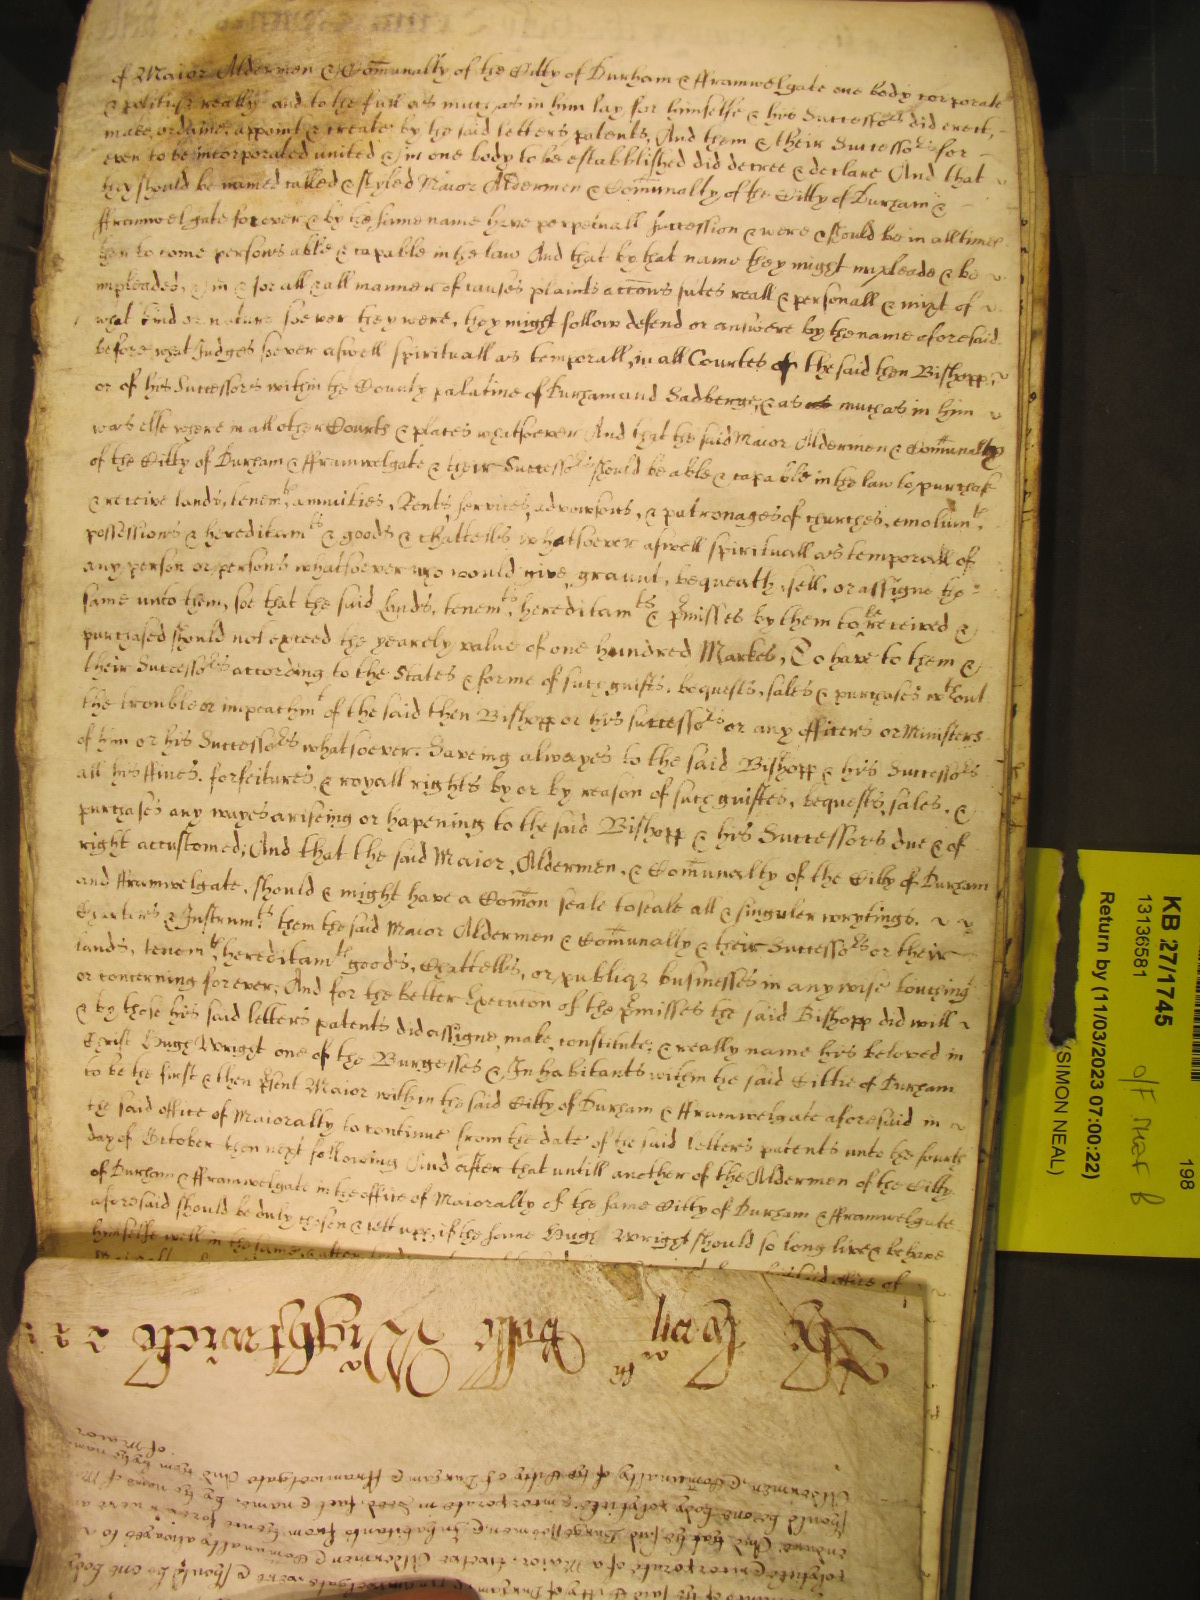 of Maior Aldermen & Cõmunalty of the Citty of Durham & fframwelgate one body corporate
& politiq̃ really and to the full as much as in him lay for himselfe & his Successo:rs did erect,
make, ordaine, appoint & create by the said letters patents, And them & their Successo:rs for
ever to be incorporated united & in one body to be establbished did decree & declare And that
they should be named called & styled Maior Aldermen & Cõmunalty of the Citty of Durham &
fframwelgate forever & by the same name have perpetuall succession & were & should be in all times
then to come persons able & capable in the law And that by that name they might impleade & be
impleaded, & in & for all & all manner of causes plaints accõns sutes reall & personall & mixt of
what kind or nature soever they were, they might follow defend or answere by the name aforesaid
before what Judges soever aswell spirituall as temporall, in all Courtes of the said then Bishopp,
or of his Successors within the County palatine of Durham and Sadberge, & as much as in him
was else where in all other Courts & places whatsoever And that the said Maior Aldermen & Cõmunalty
of the Citty of Durham & fframwelgate & their Successo:rs should be able & capable in the law to purchase
& receive lands, tenem:ts, annuities, Rents, services, advowsons, & patronages of churches, emolum:ts,
possessions & hereditam:ts & goods & chattells whatsoever aswell spirituall as temporall of
any person or persons whatsoever who would give, graunt, bequeath, sell, or assigne the
same unto them, soe that the said Lands, tenem:ts, hereditam:ts & p̃misses by them to be received &
purchased should not exceed the yearely value of one hundred Markes, To have to them &
their Successo:rs according to the States & forme of such guifts, bequests, sales & purchases w:thout
the trouble or impeachm:t of the said then Bishopp or his successo:rs or any officers or Ministers
of him or his Successo:rs whatsoever. Saveing alwayes to the said Bishopp & his Successo:rs
all his ffines, forfeitures, & royall rights by or by reason of such guiftes, bequests, sales, &
purchases any wayes ariseing or hapening to the said Bishopp & his Successors due & of
right accustomed; And that the said Maior, Aldermen, & Cõmunalty of the Citty of Durham
and fframwelgate, should & might have a Cõmon seale to seale all & singuler wrytings,
Charters & Instrum:ts them the said Maior Aldermen & Cõmunalty & their Successo:rs or their
lands, tenem:ts, hereditam:ts goods, Chattells, or publiq̃ businesses in any wise touching
or concerning forever; And for the better Execuc̃on of the p̃misses the said Bishopp did will
& by those his said letters patents did assigne, make, constitute, & really name his beloved in
Christ Hugh Wright one of the Burgesses & Inhabitants within the said Cittie of Durham
to be the first & then p̃sent Maior within the said Citty of Durham & fframwelgate aforesaid in
the said office of Maioralty to continue from the date of the said letters patents unto the fourth
day of October then next following And after that untill another of the Aldermen of the Citty
of Durham & fframwelgate in the office of Maioralty of the same Citty of Durham & fframwelgate
aforesaid should be duly chosen & sett upp, if the same Hugh Wright should so long live & behave
himselfe well in the same, & after
said office of
KB 27/1745
13136581
Return by (11/03/2023 07:00:22)
(SIMON NEAL)
198
o/F
Wightwicke
of Maior
Aldermen & Cõmunalty of the Citty of Durham & fframwelgate And them by the name
should be one body politiq̃ & incorporate in deed, fact & name, by the name of